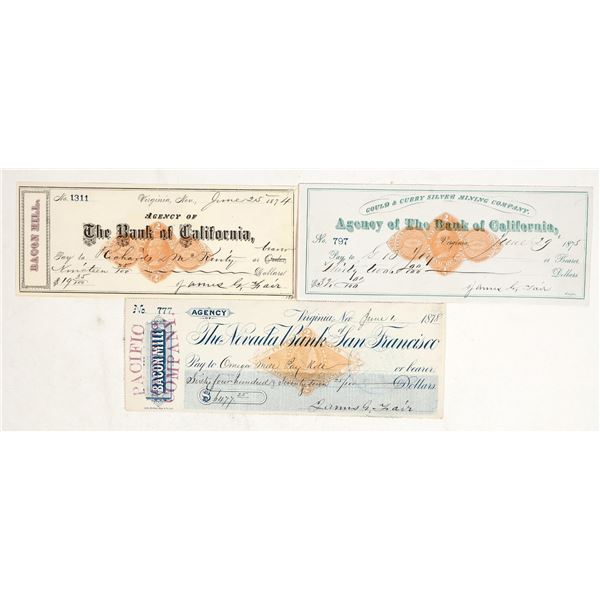 BACON MILL.
No. 1311 Virginia, Nev, June 25 1874
AGENCY OF
The Bank of California,
Pay to Richards & McKenty or Order
Nineteen Dollars
$19 25/100 James G. Fair
GOULD & CURRY SILVER MINING COMPANY.
Agency of The Bank of California,
No. 797 Virginia, June 29 1875
Pay to or Bearer
Thirty Dollars
James G. Fair
No. 777. AGENCY Virginia, Nev June 1 1878
OF
The Nevada Bank of San Francisco
PACIFIC
BACON MILL
COMPANY
Pay to Omega Mill Pay Roll or bearer
Sixty four hundred & Seventy seven 25/100 Dollars
$6477 25 James G. Fair